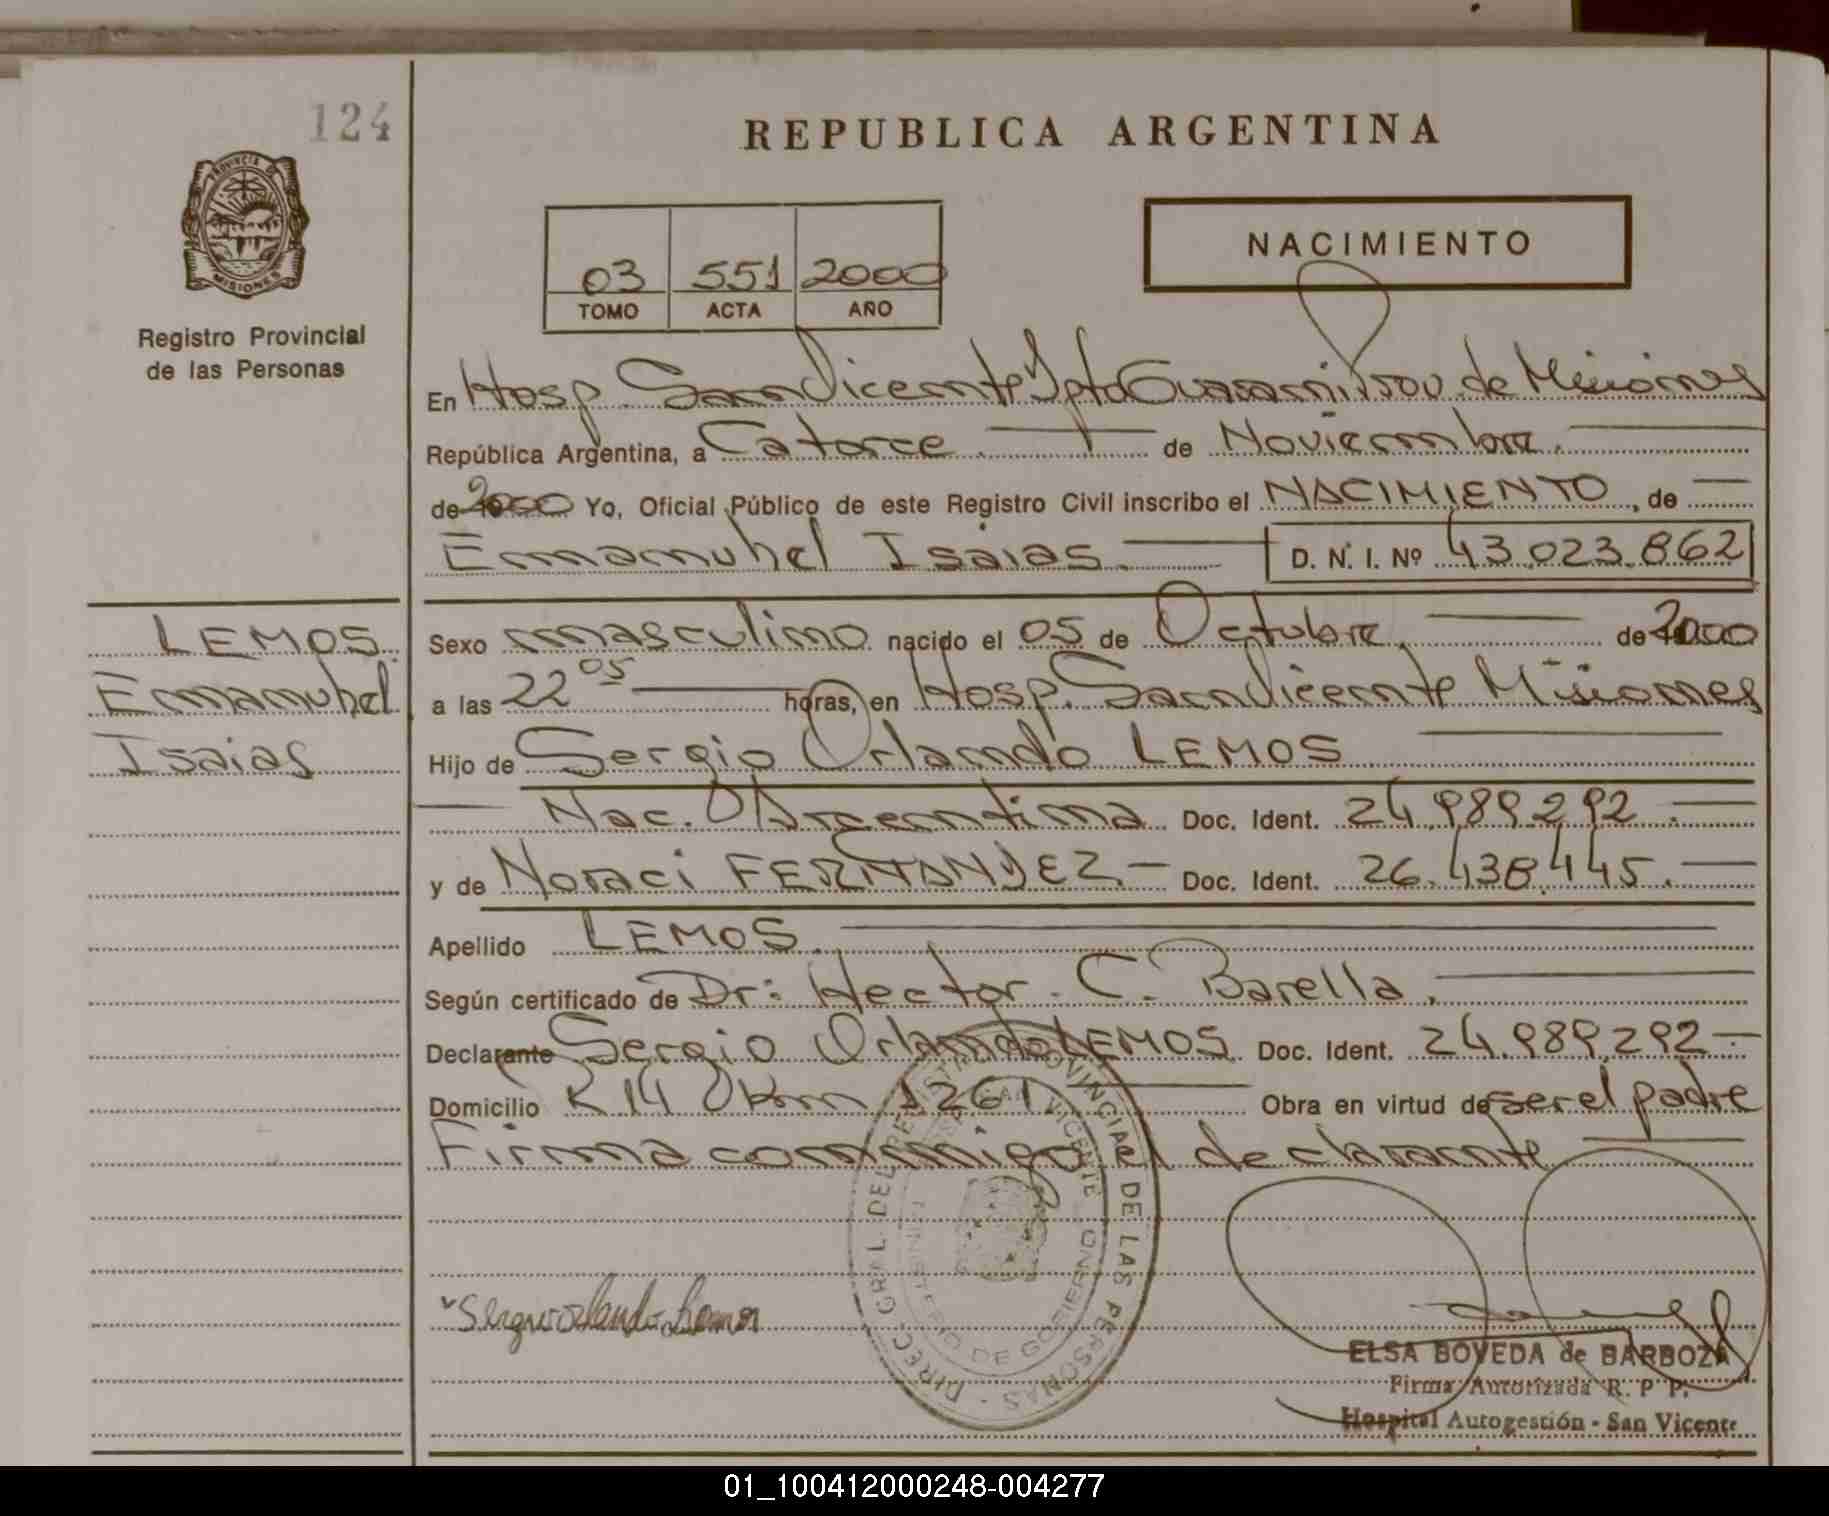 124
REPUBLICA ARGENTINA
PROVINCIA DE
MISIONES
Registro Provincial
de las Personas
NACIMIENTO
03 551 2000
TOMO ACTA AÑO
En Hosp. San Vicente Dpto Guarani, Prov. de Misiones
República Argentina, a Catorce de Noviembre.
de 2000 Yo, Oficial Público de este Registro Civil inscribo el NACIMIENTO, de
Emanuhel Isaias. D. N. I. Nº 43.023.862
LEMOS
Emanuhel
Isaias
Sexo masculino nacido el 05 de Octubre de 2000
a las 22 05 horas, en Hosp. San Vicente Misiones
Hijo de Sergio Orlando LEMOS
Nac. Argentina Doc. Ident. 24.989.292.
y de Noraci FERNANDEZ.- Doc. Ident. 26.438.445.
Apellido LEMOS.
Según certificado de Dr: Hector. C. Barella.
Declarante Sergio Orlando LEMOS Doc. Ident. 24.989.292
Domicilio R 14 Km 1261 Obra en virtud de ser el padre
Firma conmigo el declarante
DIREC. GRAL. DEL REGISTRO PROVINCIAL DE LAS PERSONAS -
SAN VICENTE
MINISTERIO DE GOBIERNO
Sergio Orlando Lemos
ELSA BOVEDA de BARBOZA
Firma Autorizada R. P. P.
Hospital Autogestión - San Vicente
01_100412000248-004277